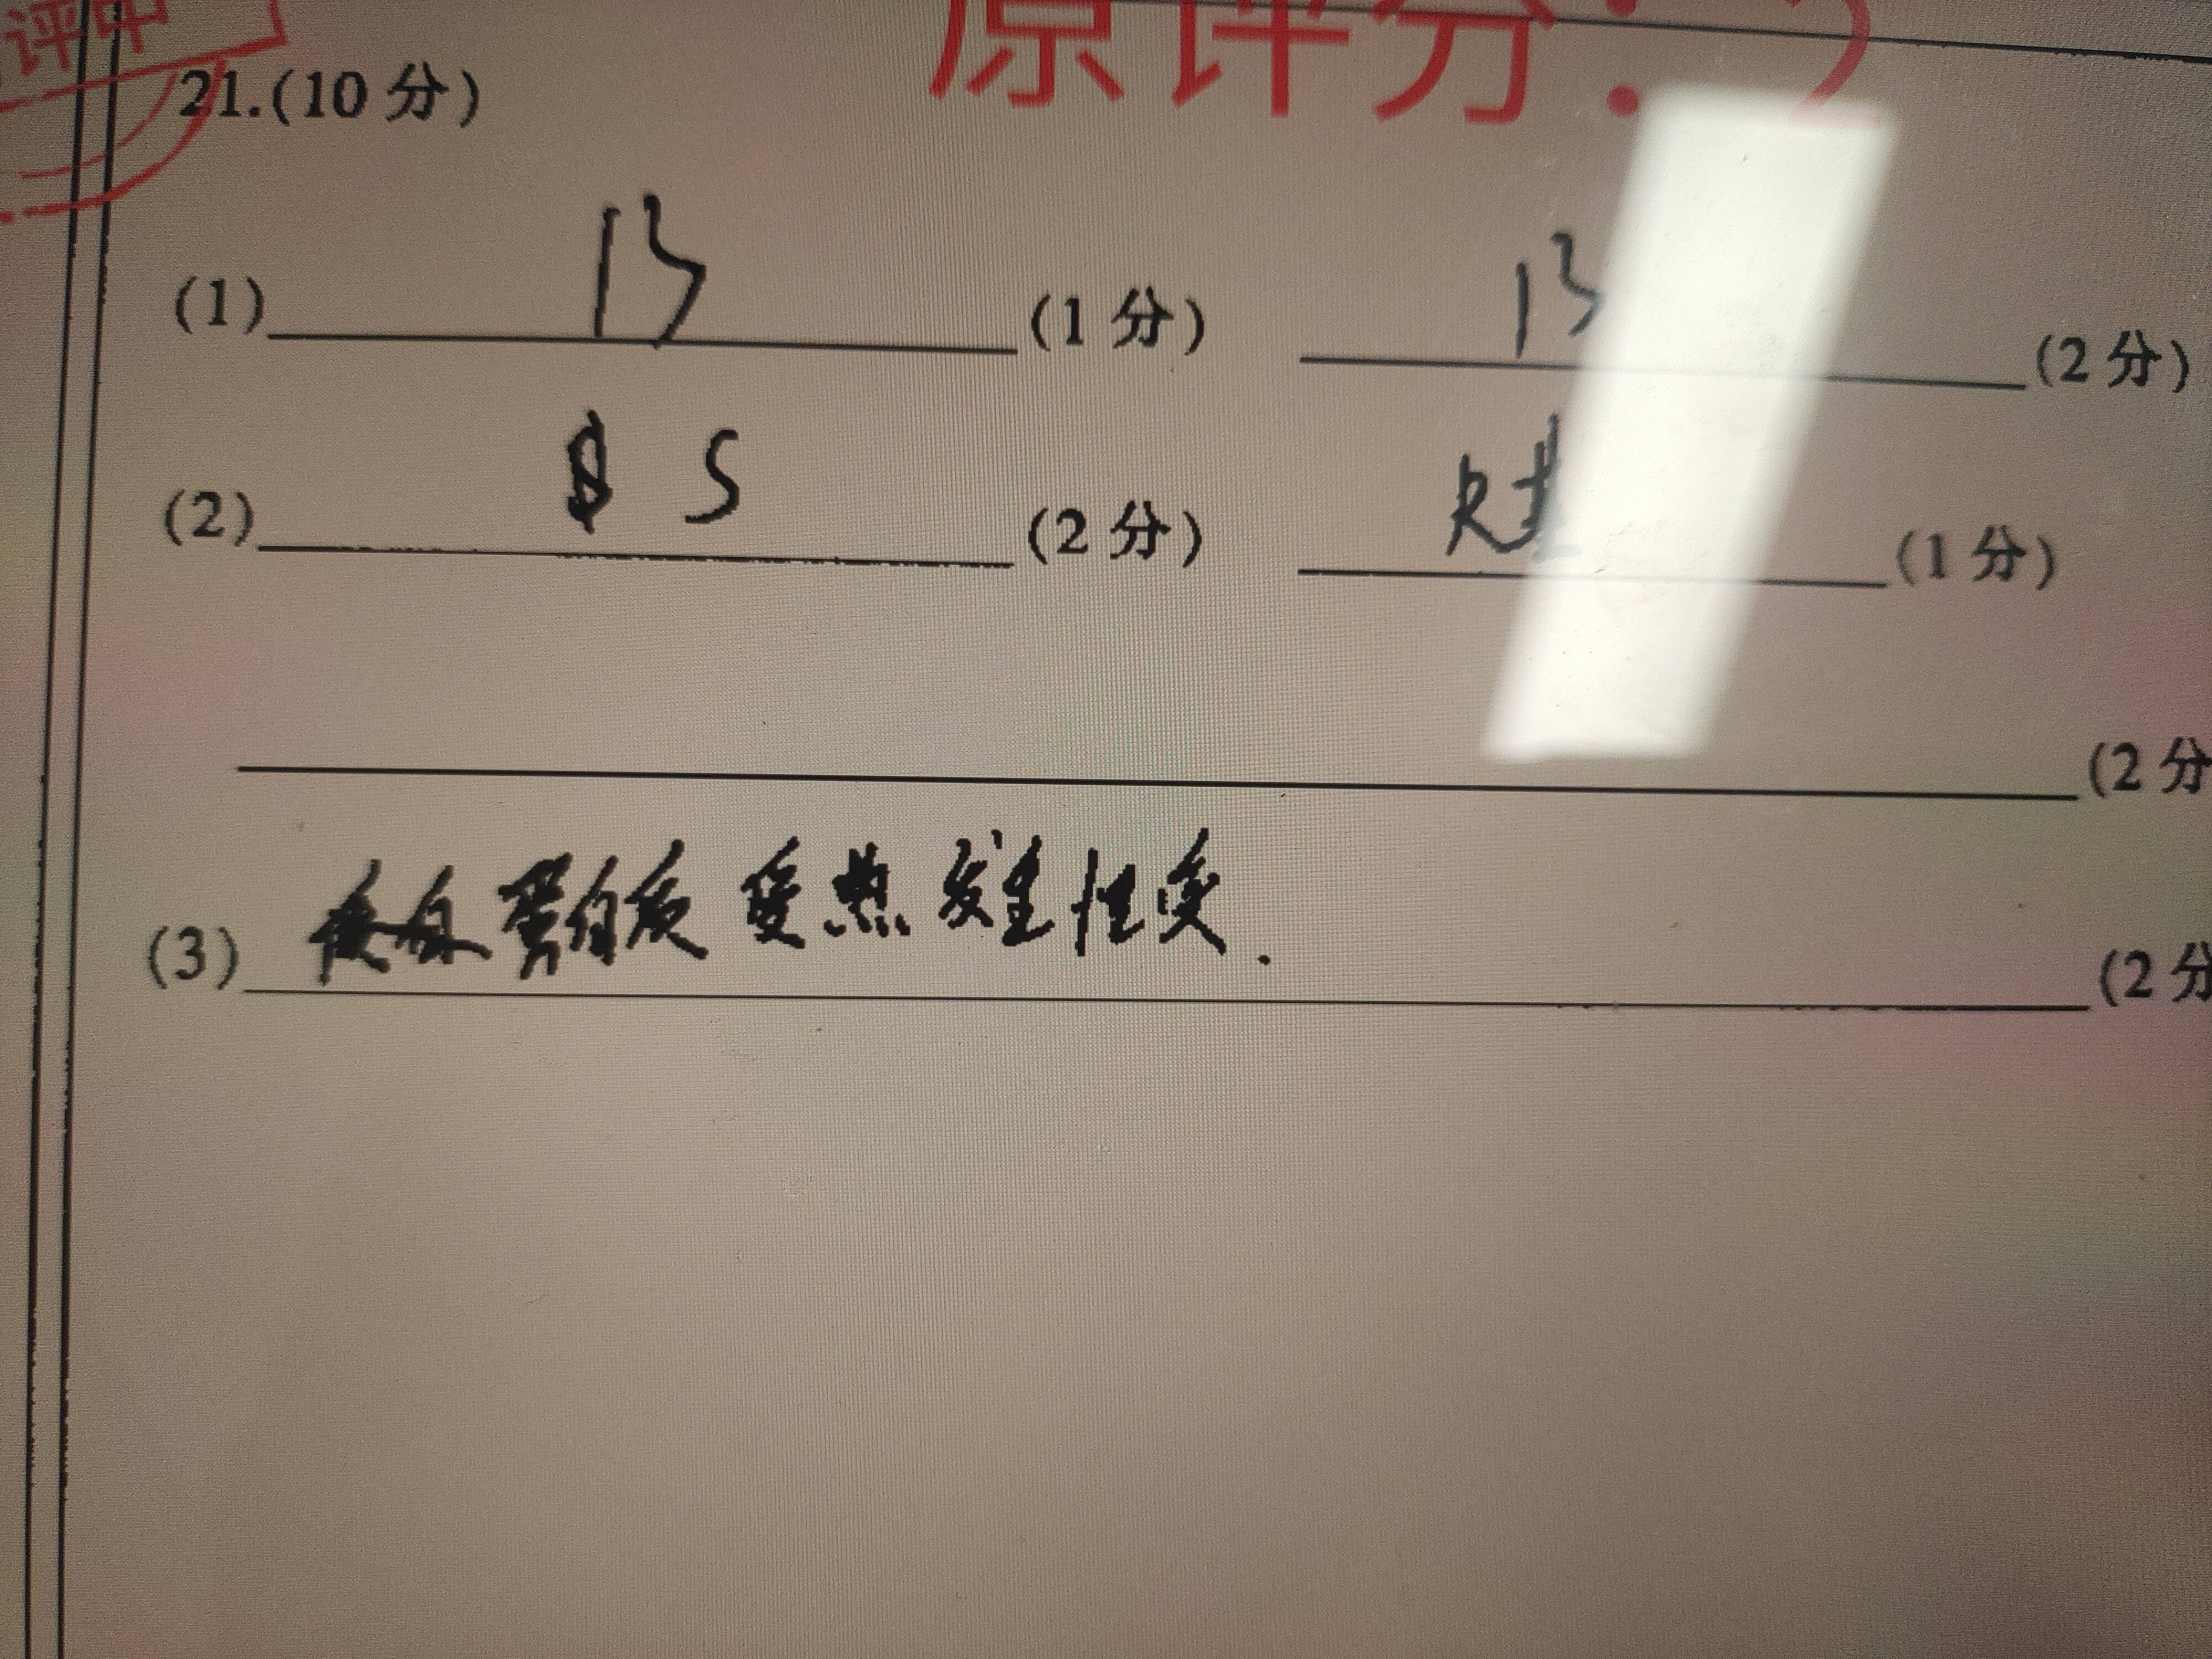 评中
原评分:
21.(10分)
(1) 13 (1分) 13 (2分)
(2) S (2分) R基 (1分)
(2分
(3) 蛋白质受热发生性变. (2分